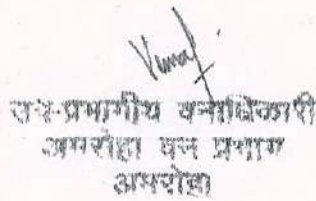 उप-प्रभागीय वनाधिकारी
अमरोहा वन प्रभाग
अमरोहा